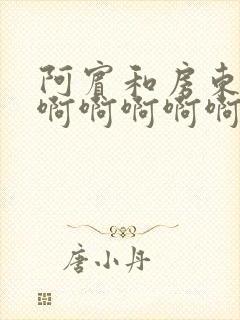 阿賓和房東
啊啊啊啊啊
唐小丹